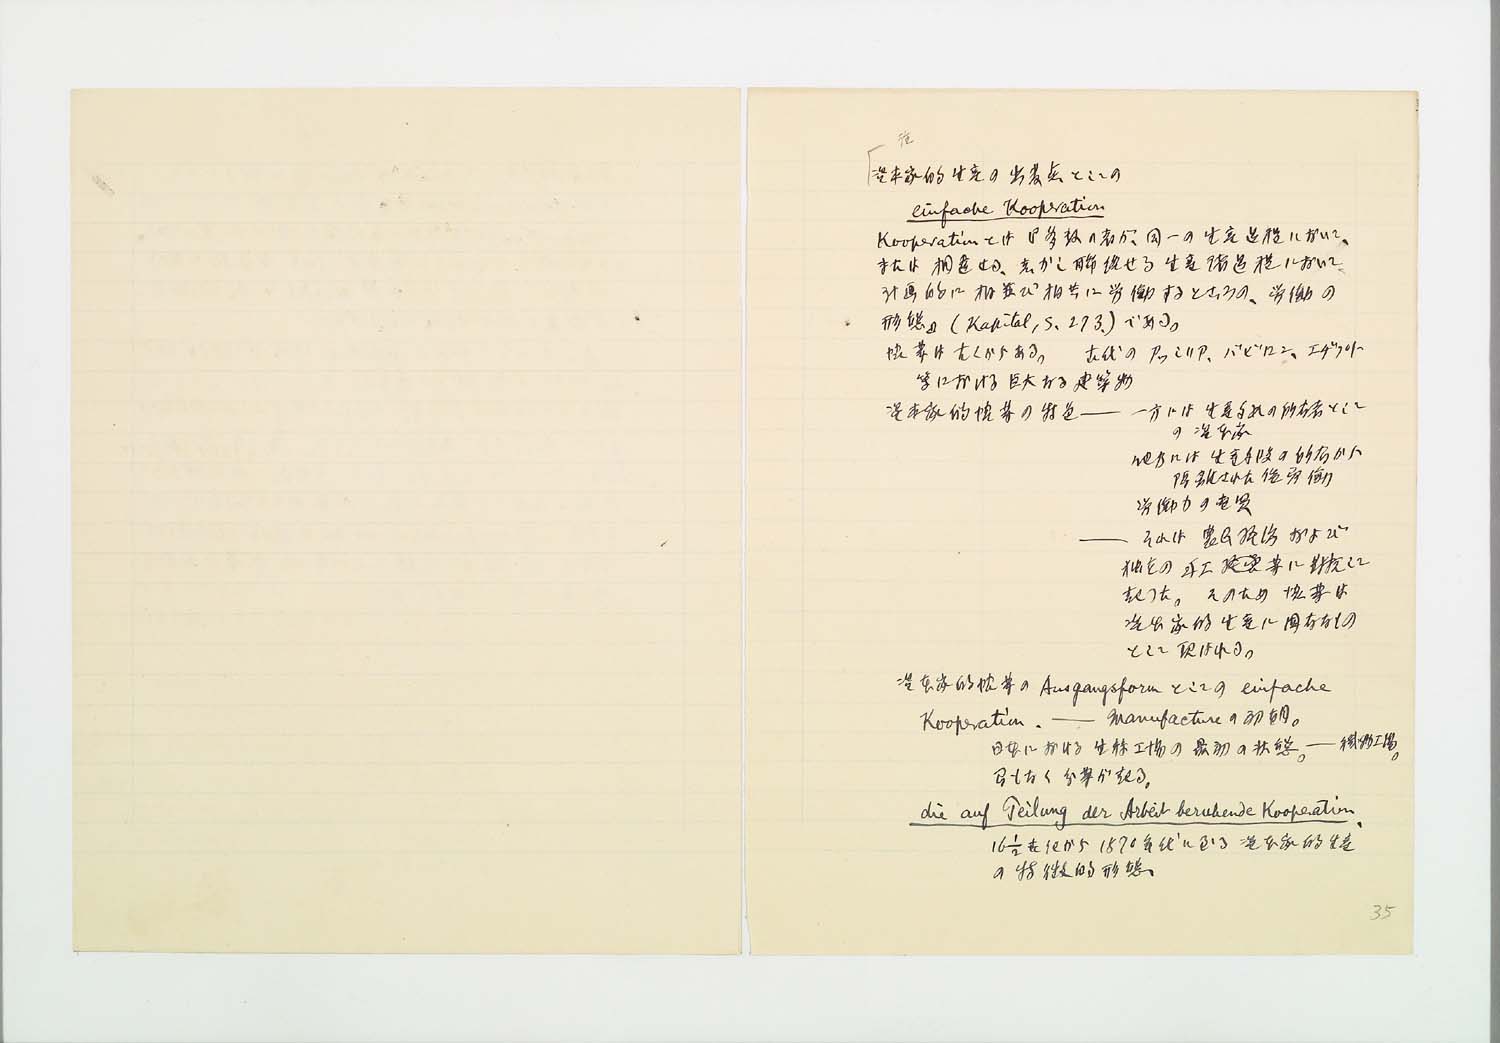 注
資本家的生産の出発点としての
einfache Kooperation
Kooperationとは『多数の者が、同一の生産過程において、
または相違せる、しかし聯絡せる生産諸過程において
計画的に相並び相共に労働するところの、労働の
形態』(Kapital, S. 273.)である。
協業は古くからある。 古代のアッシリア、バビロン、エヂプト
等における巨大なる建築物
資本家的協業の特色―― 一方には生産手段の所有者とし
の資本家
他方には生産手段の所有から
隔離された賃労働
労働力の売買
―― それは農民経済および
独立の手工経営等に対抗して
起つた。 そのため協業は
資本家的生産に固有なもの
として現はれる。
資本家的協業のAusgangsformとしてのeinfache
Kooperation. ―― Manufactureの初期。
日本における生糸工場の最初の状態。―織物工場。
間もなく分業が起る。
die auf Teilung der Arbeit beruhende Kooperation.
16½世紀から1870年代に至る資本家的生産
の特徴的形態。
35